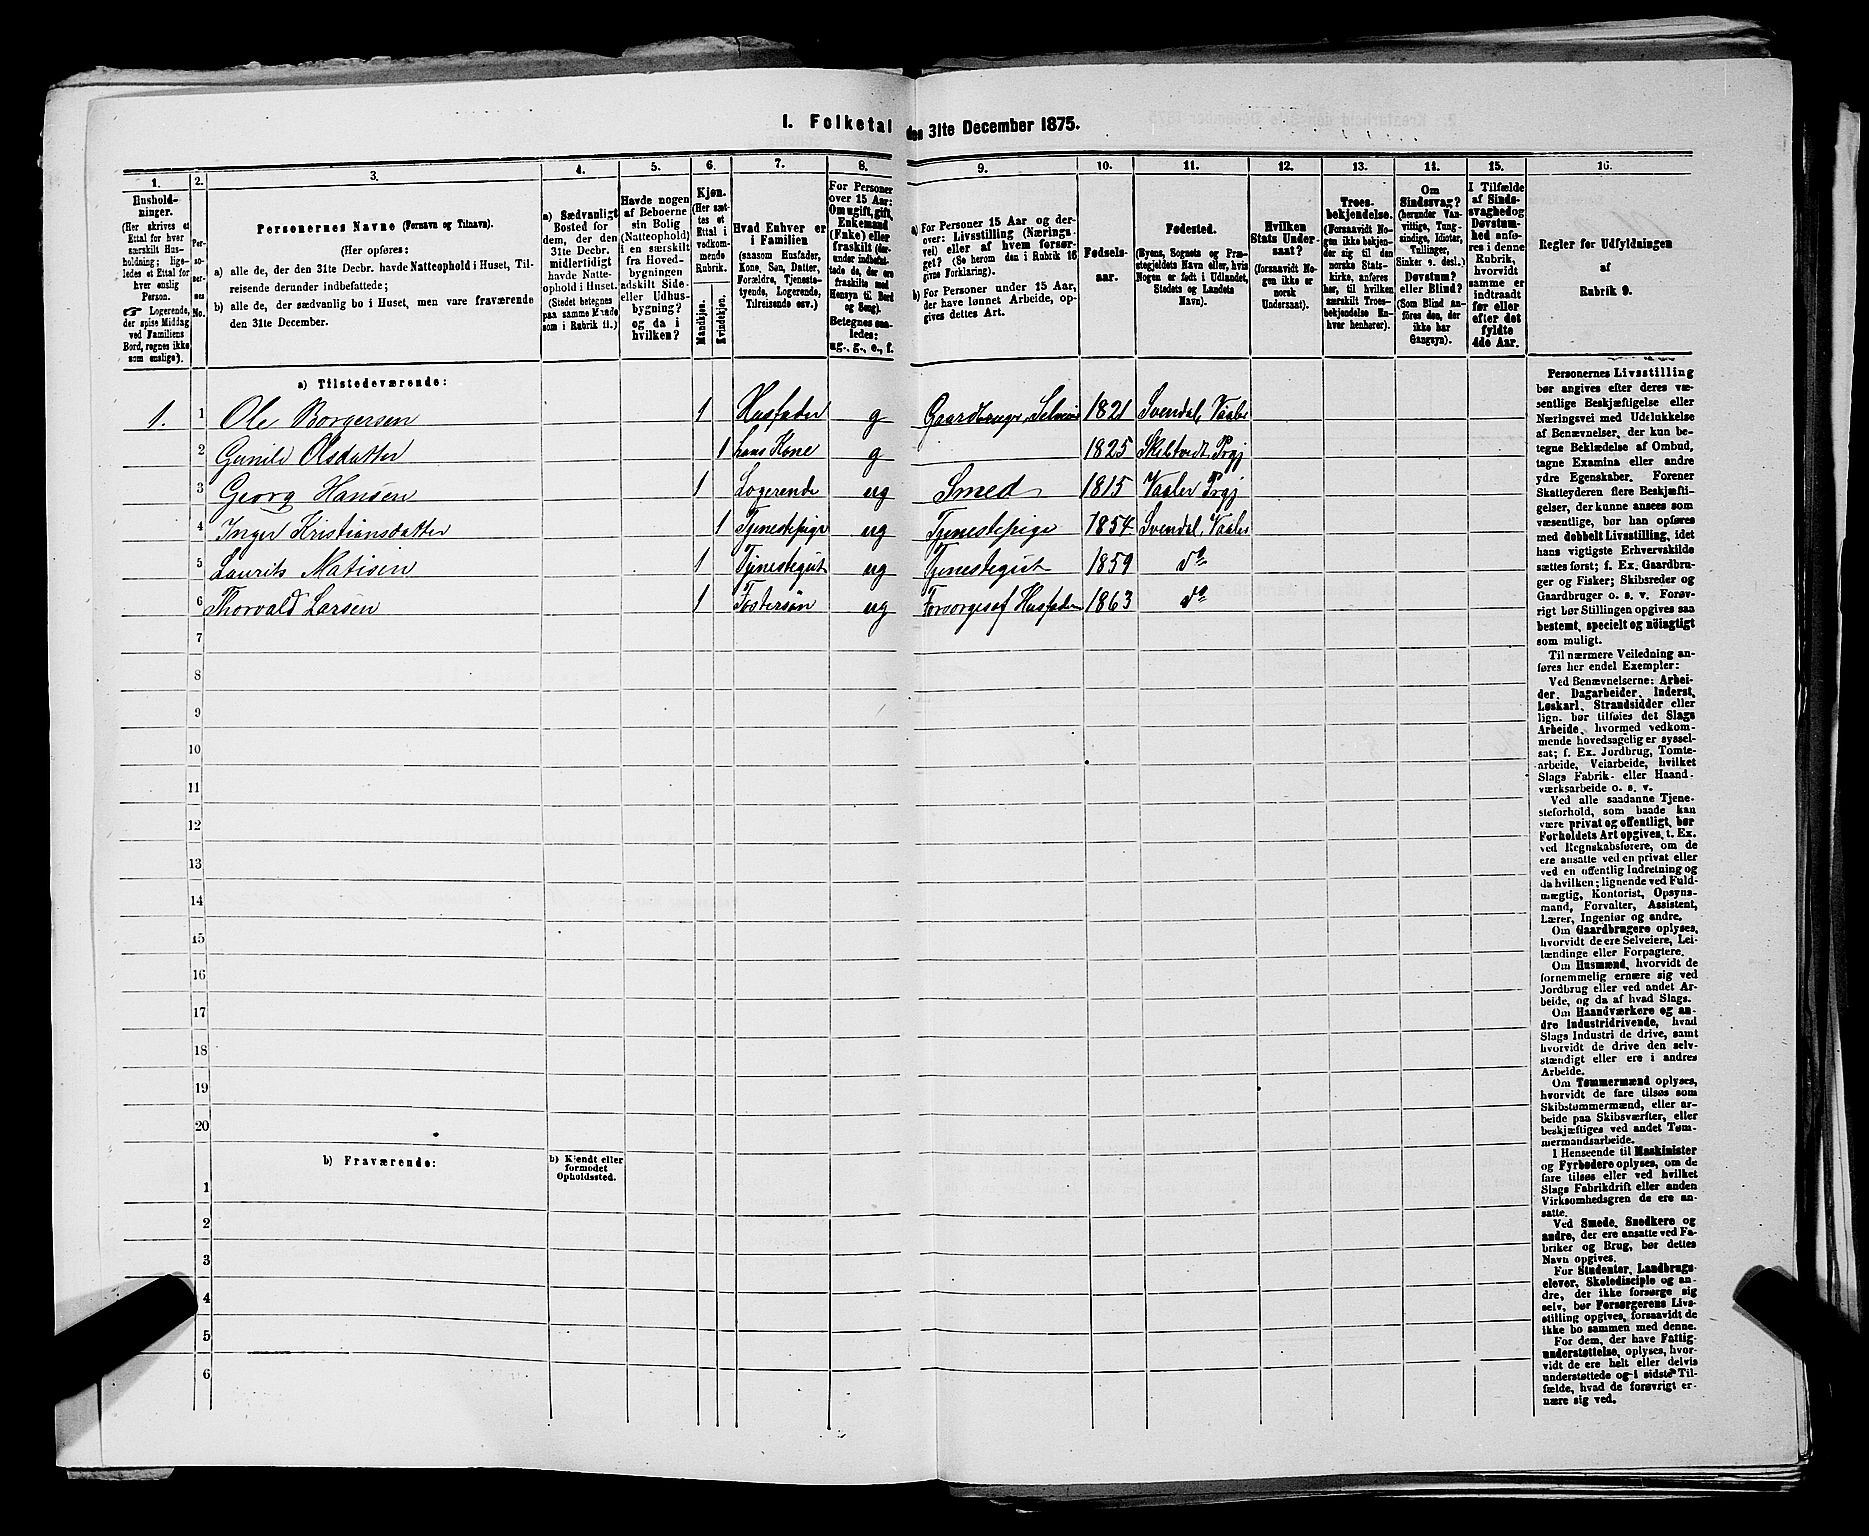 I. Folketal den 31te December 1875.
1. 2. 3. 4. 5. 6. 7. 8. 9. 10. 11. 12. 13. 14. 15. 16.
Husholdninger.
(Her skrives et
Ettal for hver
særskilt Husholdning;
ligeledes
et Ettal for
hver enslig
Person.
☞ Logerende,
der spise Middag
ved Familiens
Bord, regnes ikke
som enslige).
Personernes No.
Personernes Navne (Fornavn og Tilnavn).
(Her opføres:
a) alle de, der den 31te Decbr. havde Natteophold i Huset, Tilreisende
derunder indbefattede;
b) alle de, der sædvanlig bo i Huset, men vare fraværende
den 31te December.
a) Sædvanligt
Bosted for
dem, der den
31te Decbr.
midlertidigt
havde Natteophold
i Huset.
(Stedet betegnes
paa samme Maade
som i Rubrik 11.)
Havde nogen
af Beboerne
sin Bolig
(Natteophold)
i en særskilt
fra Hovedbygningen
adskilt Side-
eller Udhusbygning?
og da i
hvilken?
Kjøn.
(Her sættes
et
Ettal i
vedkommende
Rubrik.
Mandkjøn.
Kvindekjøn.
Hvad Enhver er
i Familien
(saasom Husfader,
Kone, Søn, Datter,
Forældre, Tjenestetyende,
Logerende,
Tilreisende osv.)
For Personer
over 15 Aar:
Om ugift, gift,
Enkemand
(Enke) eller
fraskilt (derunder
indbefattede
de, der ere
fraskilte med
Hensyn til Bord
og Seng).
Betegnes saaledes:
ug., g., e., f.
a) For Personer 15 Aar og derover:
Livsstilling (Næringsvei)
eller af hvem forsørget?
(Se herom den i Rubrik 16
givne Forklaring).
b) For Personer under 15 Aar,
der have lønnet Arbeide, opgives
dettes Art.
Fødselsaar.
Fødested.
(Byens, Sognets og Præstegjeldets
Navn eller, hvis
Nogen er født i Udlandet,
Stedets og Landets
Navn).
Hvilken
Stats Undersaat?
(forsaavidt Nogen
ikke er
norsk
Undersaat).
Troesbekjendelse.
(Forsaavidt Nogen
ikke bekjender
sig til den
norske Statskirke,
anføres
her, til hvilken
særskilt Troesbekjendelse
Enhver
henhører).
Om
Sindssvag?
(herunder Vanvittige,
Tungsindige,
Idioter,
Tullinger,
Sinker o. desl.)
Døvstum?
eller Blind?
(Som Blind anføres
den, der
ikke har
Gangsyn).
I Tilfælde
af Sindssvaghed
og
Døvstumhed
anføres
i denne
Rubrik,
hvorvidt
samme er
indtraadt
før eller
efter det
fyldte
4de Aar.
Regler for Udfyldningen
af
Rubrik 9.
a) Tilstedeværende:
1. 1 Ole Borgersen 1 Husfader g Gaardbruger, Selveier 1821 Svendal, Vaaler
2 Gunild Olsdatter 1 hans Kone g 1825 Skibtvedt Prgj
3 Georg Hansen 1 Logerende ug Smed 1815 Vaaler Prgj
4 Inger Kristiansdatter 1 Tjenestepige ug Tjenestepige 1854 Svendal, Vaaler
5 Laurits Matisen 1 Tjenestegut ug Tjenestegut 1859 do
6 Thorvald Larsen 1 Fostersøn ug Forsorges af Husfader 1863 do
7
8
9
10
11
12
13
14
15
16
17
18
19
20
b) Fraværende:
b) Kjendt eller
formodet
Opholdssted.
1
2
3
4
5
6
Personernes Livsstilling
bør angives efter deres væsentlige
Beskjæftigelse eller
Næringsvei med Udelukkelse
af Benævnelser, der kun betegne
Beklædelse af Ombud,
tagne Examina eller andre
ydre Egenskaber. Forener
Skatteyderen flere Beskjæftigelser,
der kunne ansees som
væsentlige, bør han opføres
med dobbelt Livsstilling, idet
hans vigtigste Erhvervskilde
sættes først; f. Ex. Gaardbruger
og Fisker; Skibsreder og
Gaardbruger o. s. v. Forøvrigt
bør Stillingen opgives saa
bestemt, specielt og nöiagtigt
som muligt.
Til nærmere Veiledning anføres
her endel Exempler:
Ved Benævnelserne: Arbeider,
Dagarbeider, Inderst,
Løskarl, Strandsidder eller
lign. bør tilføies det Slags
Arbeide, hvormed vedkommende
hovedsagelig er sysselsat;
f. Ex. Jordbrug, Tomtearbeide,
Veiarbeide, hvilket
Slags Fabrik- eller Haandværksarbeide
o. s. v.
Ved alle saadanne Tjenesteforhold,
som baade kan
være privat og offentligt, bør
Forholdets Art opgives, t. Ex.
ved Regnskabsførere, om de
ere ansatte ved en privat eller
ved en offentlig Indretning og
da hvilken; lignende ved Fuldmægtig,
Kontorist, Opsynsmand,
Forvalter, Assistent,
Lærer, Ingeniør og andre.
Om Gaardbrugere oplyses,
hvorvidt de ere Selveiere, Leilændinge
eller Forpagtere.
Om Husmænd, hvorvidt de
fornemmelig ernære sig ved
Jordbrug eller ved andet Arbeide,
og da af hvad Slags.
Om Haandværkere og andre
Industridrivende, hvad
Slags Industri de drive, samt
hvorvidt de drive den selvstændigt
eller ere i andres
Arbeide.
Om Tømmermænd oplyses,
hvorvidt de fare tilsøs som
Skibstømmermænd, eller arbeide
paa Skibsværfter, eller
beskjæftiges ved andet Tømmermandsarbeide.
I Henseende til Maskinister
og Fyrbødere oplyses, om de
fare tilsøs eller ved hvilket
Slags Fabrikdrift eller anden
Virksomhedsgren de ere ansatte.
Ved Smede, Snedkere og
andre, der ere ansatte ved Fabriker
og Brug, bør dettes
Navn opgives.
For Studenter, Landbrugselever,
Skoledisciple og andre,
der ikke forsørge sig
selv, bør Forsørgerens Livsstilling
opgives, forsaavidt de
ikke bo sammen med denne.
For dem, der have Fattigunderstøttelse,
oplyses, hvorvidt
de ere helt eller delvis
understøttede og i sidste Tilfælde,
hvad de forøvrigt ernære
sig ved.